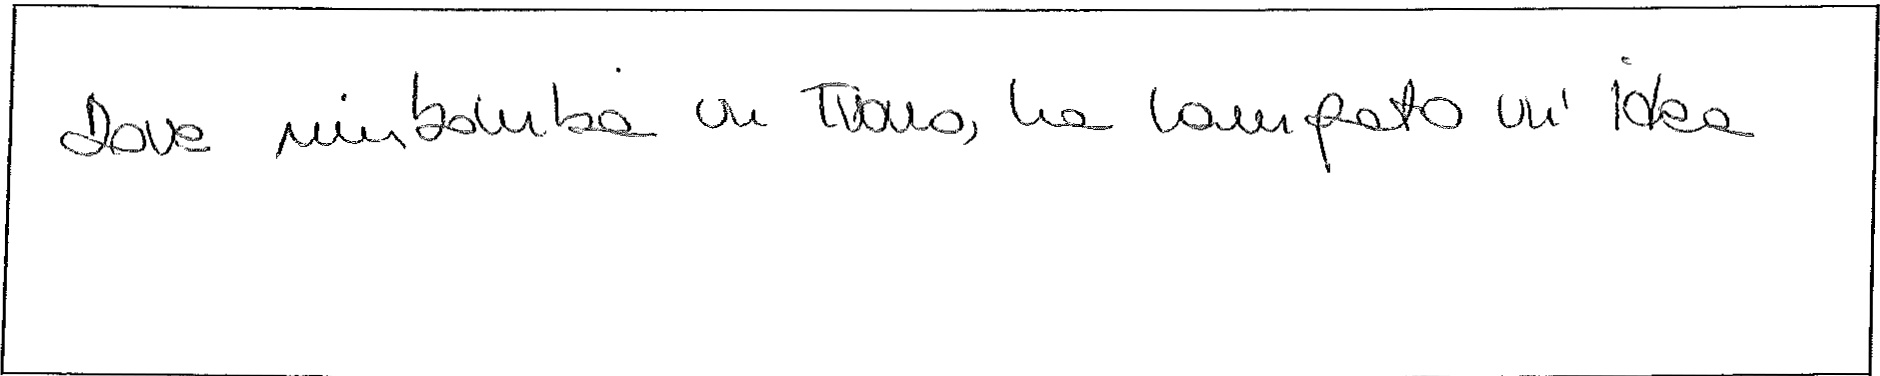 Dove rimbomba un Tuono, ha lampato un' idea